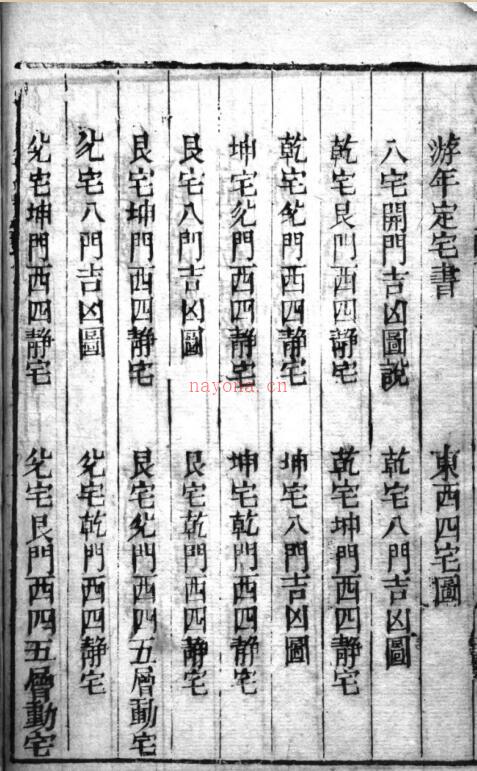 游年定宅書　東西四宅圖
八宅開門吉凶圖說　乾宅八門吉凶圖
乾宅艮門西四静宅　乾宅坤門西四静宅
乾宅兊門西四静宅　坤宅八門吉凶圖
坤宅兊門西四静宅　坤宅乾門西四静宅
艮宅八門吉凶圖　艮宅乾門西四静宅
艮宅坤門西四静宅　艮宅兊門西四五層動宅
兊宅八門吉凶圖　兊宅乾門西四静宅
兊宅坤門西四静宅　兊宅艮門西四五層動宅
nayona.cn